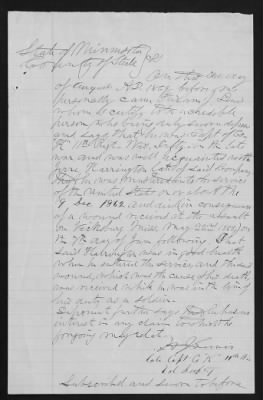 State of Minnesota
County of Steele
On this day
of August A.D. 186 before me
personally came
whom I certify to be a credible
person, who being duly sworn deposes
and says that he was Capt of Co.
"K" 11th Regt Wis. Infty in the late
war and was well acquainted with
Harrington late of said Company
was into the service
of the United States on or about the
9 Dec 1862 and died in consequence
of a wound received at the assault
on Vicksburg Miss, May 22nd 1863, on
the 7th day of June following. That
said Harrington was in good health
when he entered the service, and this
wound, which was the cause of his death
was received while he was in the line of
his duty as a soldier.
Deponent further says he has no
interest in any claim to which the
foregoing may relate.
Late Capt Co "K" 11th Wis
Vol Infty
Subscribed and sworn to before